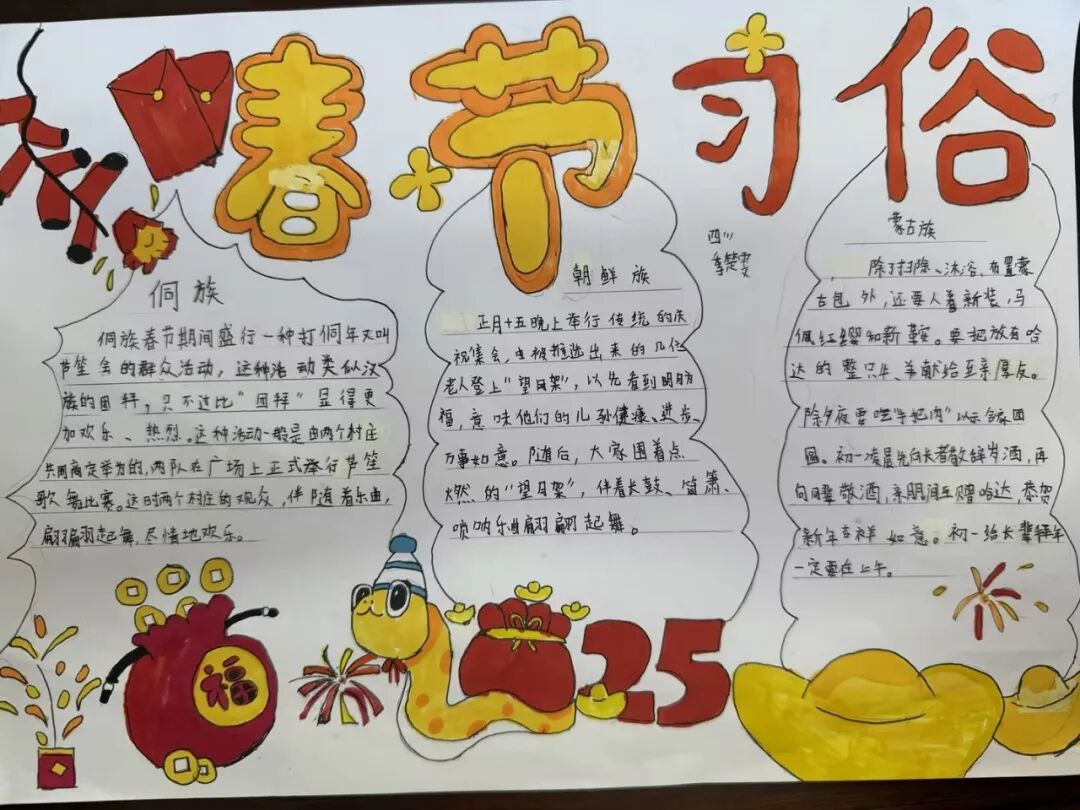 春节习俗
侗族
侗族春节期间盛行一种打侗年又叫
芦笙会的群众活动，这种活动类似汉
族的团拜，只不过比“团拜”显得更
加欢乐、热烈。这种活动一般是由两个村庄
共同商定举办的，两队在广场上正式举行芦笙
歌舞比赛。这时两个村庄的观众，伴随着乐曲，
翩翩起舞，尽情地欢乐。
朝鲜族
正月十五晚上举行传统的庆
祝集会，由被推选出来的几位
老人登上“望月架”，以先看到明月为
福，意味他们的儿孙健康、进步、
万事如意。随后，大家围着点
燃的“望月架”，伴着长鼓、笛箫、
唢呐乐曲翩翩起舞。
四
李楚雯
蒙古族
除了扫除、沐浴、布置蒙
古包外，还要人着新装，马
佩红缨和新鞍。要把放有哈
达的整只牛、羊献给至亲厚友。
除夕夜要吃“手把肉”以示合家团
圆。初一凌晨先向长者敬辞岁酒，再
向同辈敬酒，亲朋间互赠哈达，恭贺
新年吉祥如意。初一给长辈拜年
一定要在上午。
福
25